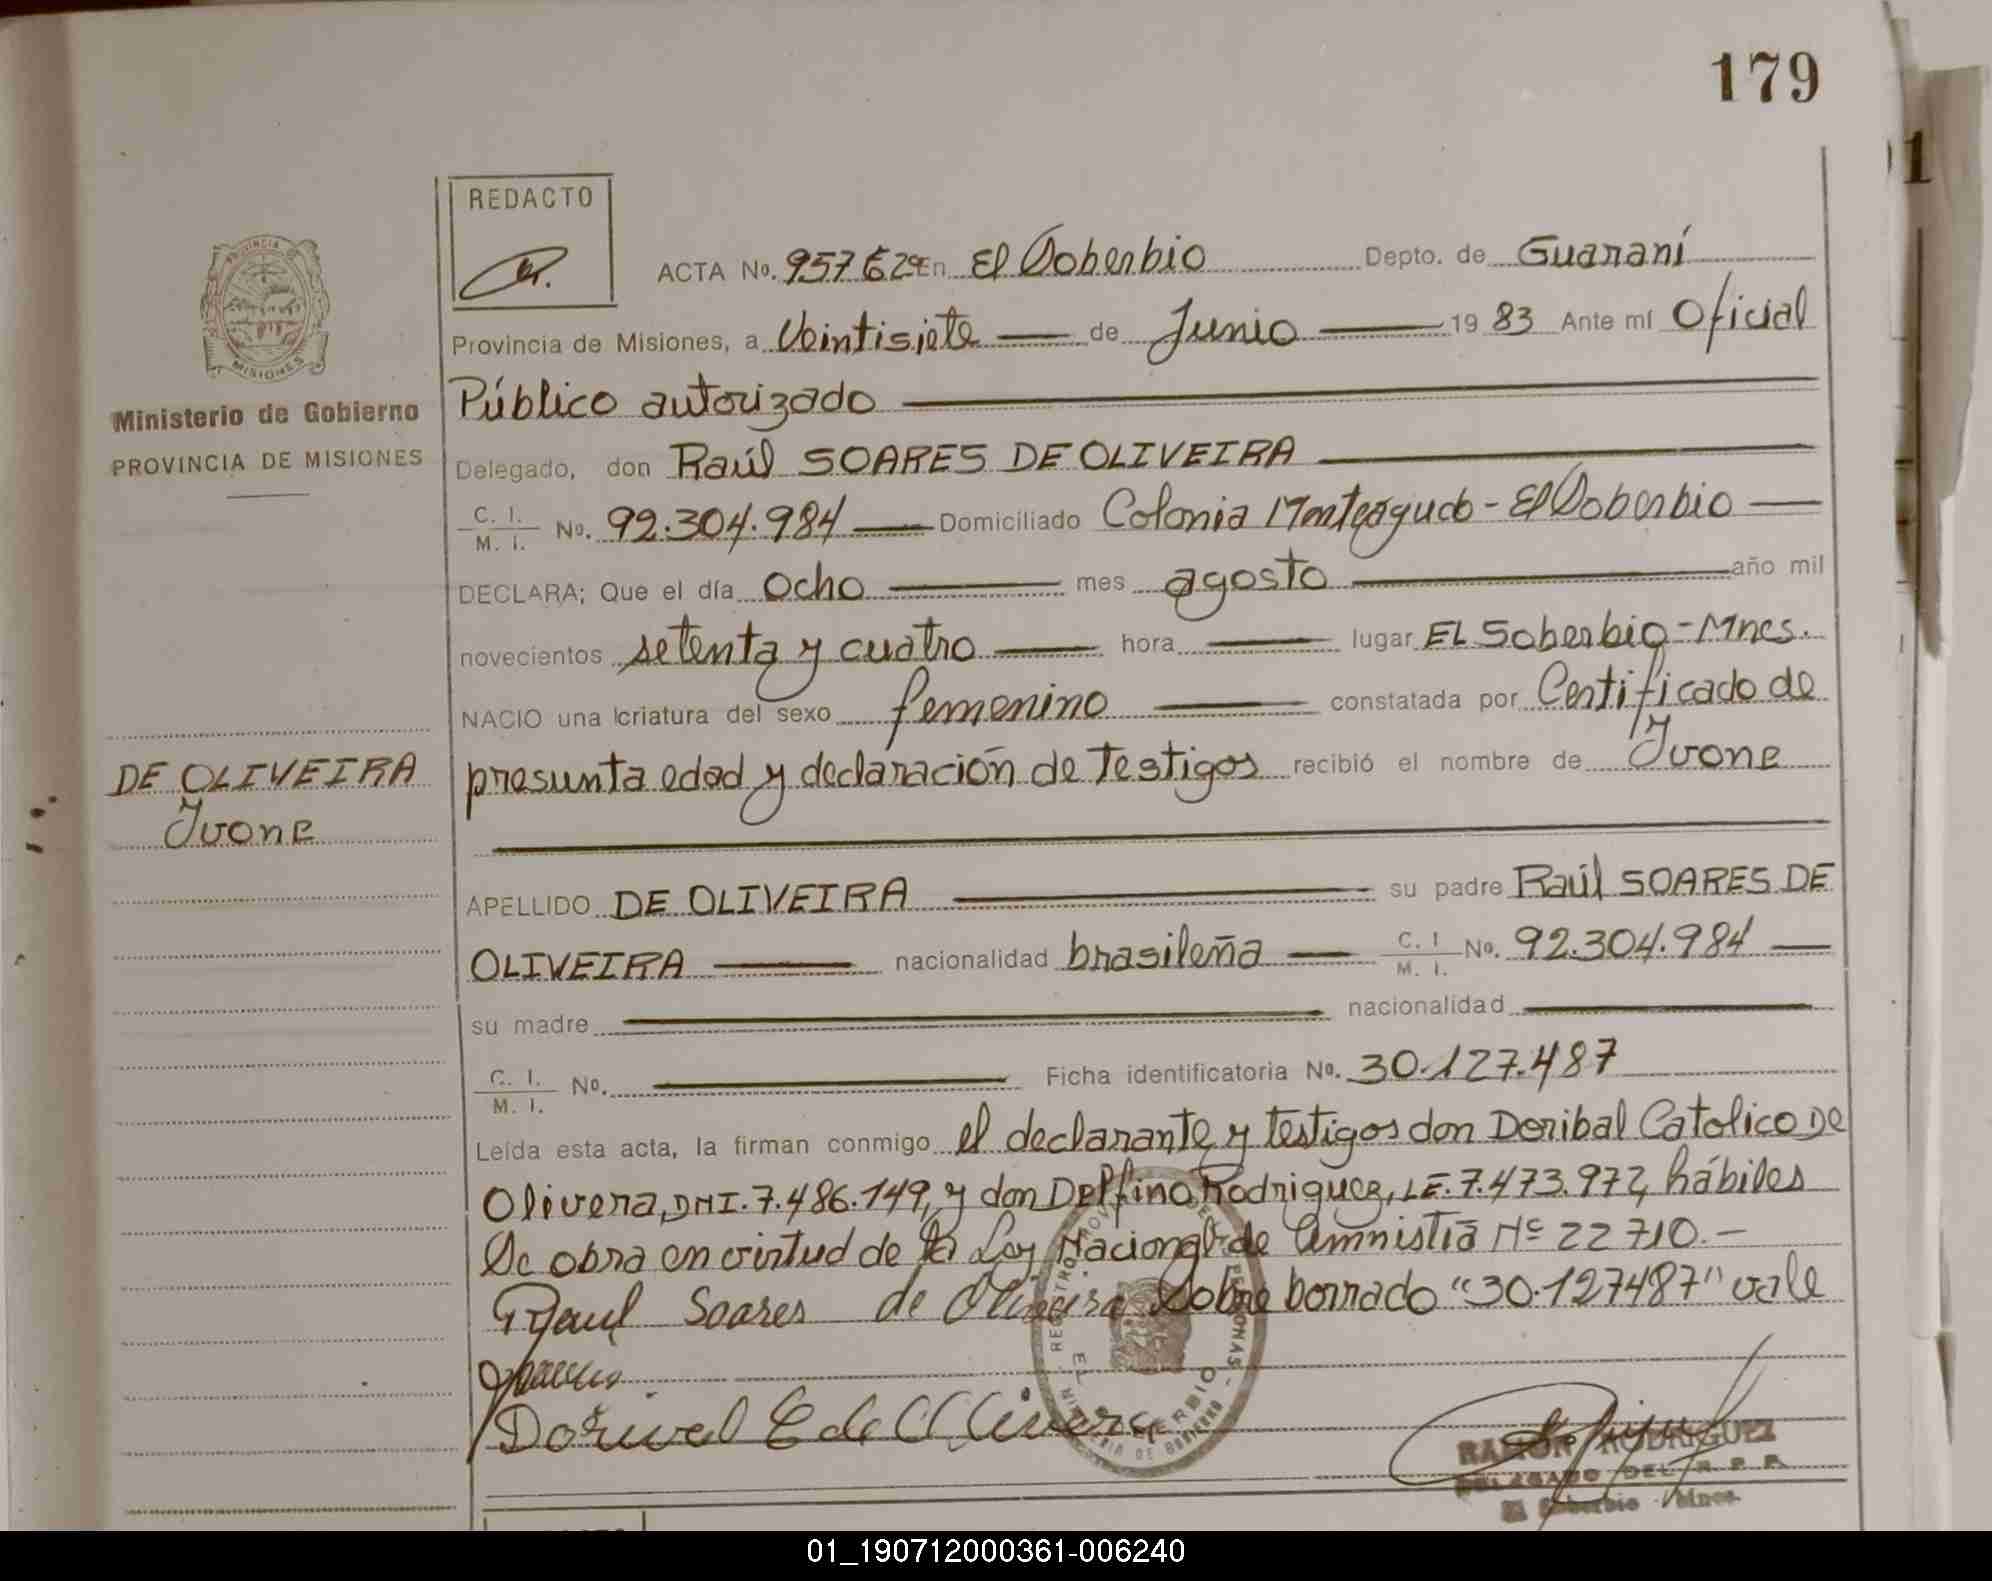 179
1
REDACTO
PROVINCIA
MISIONES
Ministerio de Gobierno
PROVINCIA DE MISIONES
ACTA No. En El Soberbio Depto. de Guaraní
Provincia de Misiones, a Veintisiete de Junio 1983 Ante mí Oficial
Público autorizado
Delegado, don Raúl SOARES DE OLIVEIRA
C. I. M. I. No. 92.304.984 Domiciliado Colonia Monteagudo - El Soberbio
DECLARA; Que el día ocho mes agosto año mil
novecientos setenta y cuatro hora lugar EL Soberbio - Mnes.
NACIO una criatura del sexo femenino constatada por Certificado de
presunta edad y declaración de Testigos recibió el nombre de Ivone
DE OLIVEIRA
Ivone
APELLIDO DE OLIVEIRA su padre Raúl SOARES DE
OLIVEIRA nacionalidad brasileña C. I M. I. No. 92.304.984
su madre nacionalidad
C. I. M. I. No. Ficha identificatoria No. 30.127.487
Leída esta acta, la firman conmigo el declarante y testigos don Doribal Catolico DE
Olivera, DNI. 7.486.149, y don Delfino Rodriguez, LE. 7.473.977, hábiles
Se obra en virtud de la Ley Nacional de Amnistía Nº 22710.-
Raul Soares de Oliveira Sobre borrado "30.127487" vale
Dorival C de Olivera
RAMON RODRIGUEZ
DELEGADO DEL R. P. P.
El Soberbio - Mnes.
01_190712000361-006240